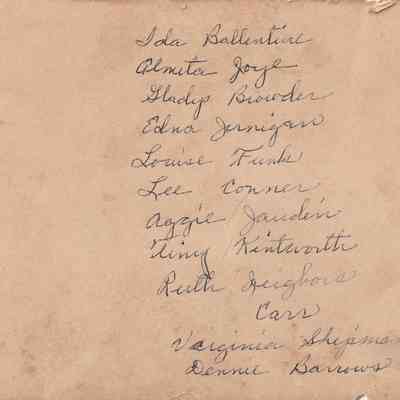 Ida Ballentine
Almeta Joye
Gladys Browder
Edna Jernigan
Louise Funk
Lee Conner
Aggie Jauden
Tiny Kintworth
Ruth Neighbors
Carr
Virginia Shipman
Dennie Barrows